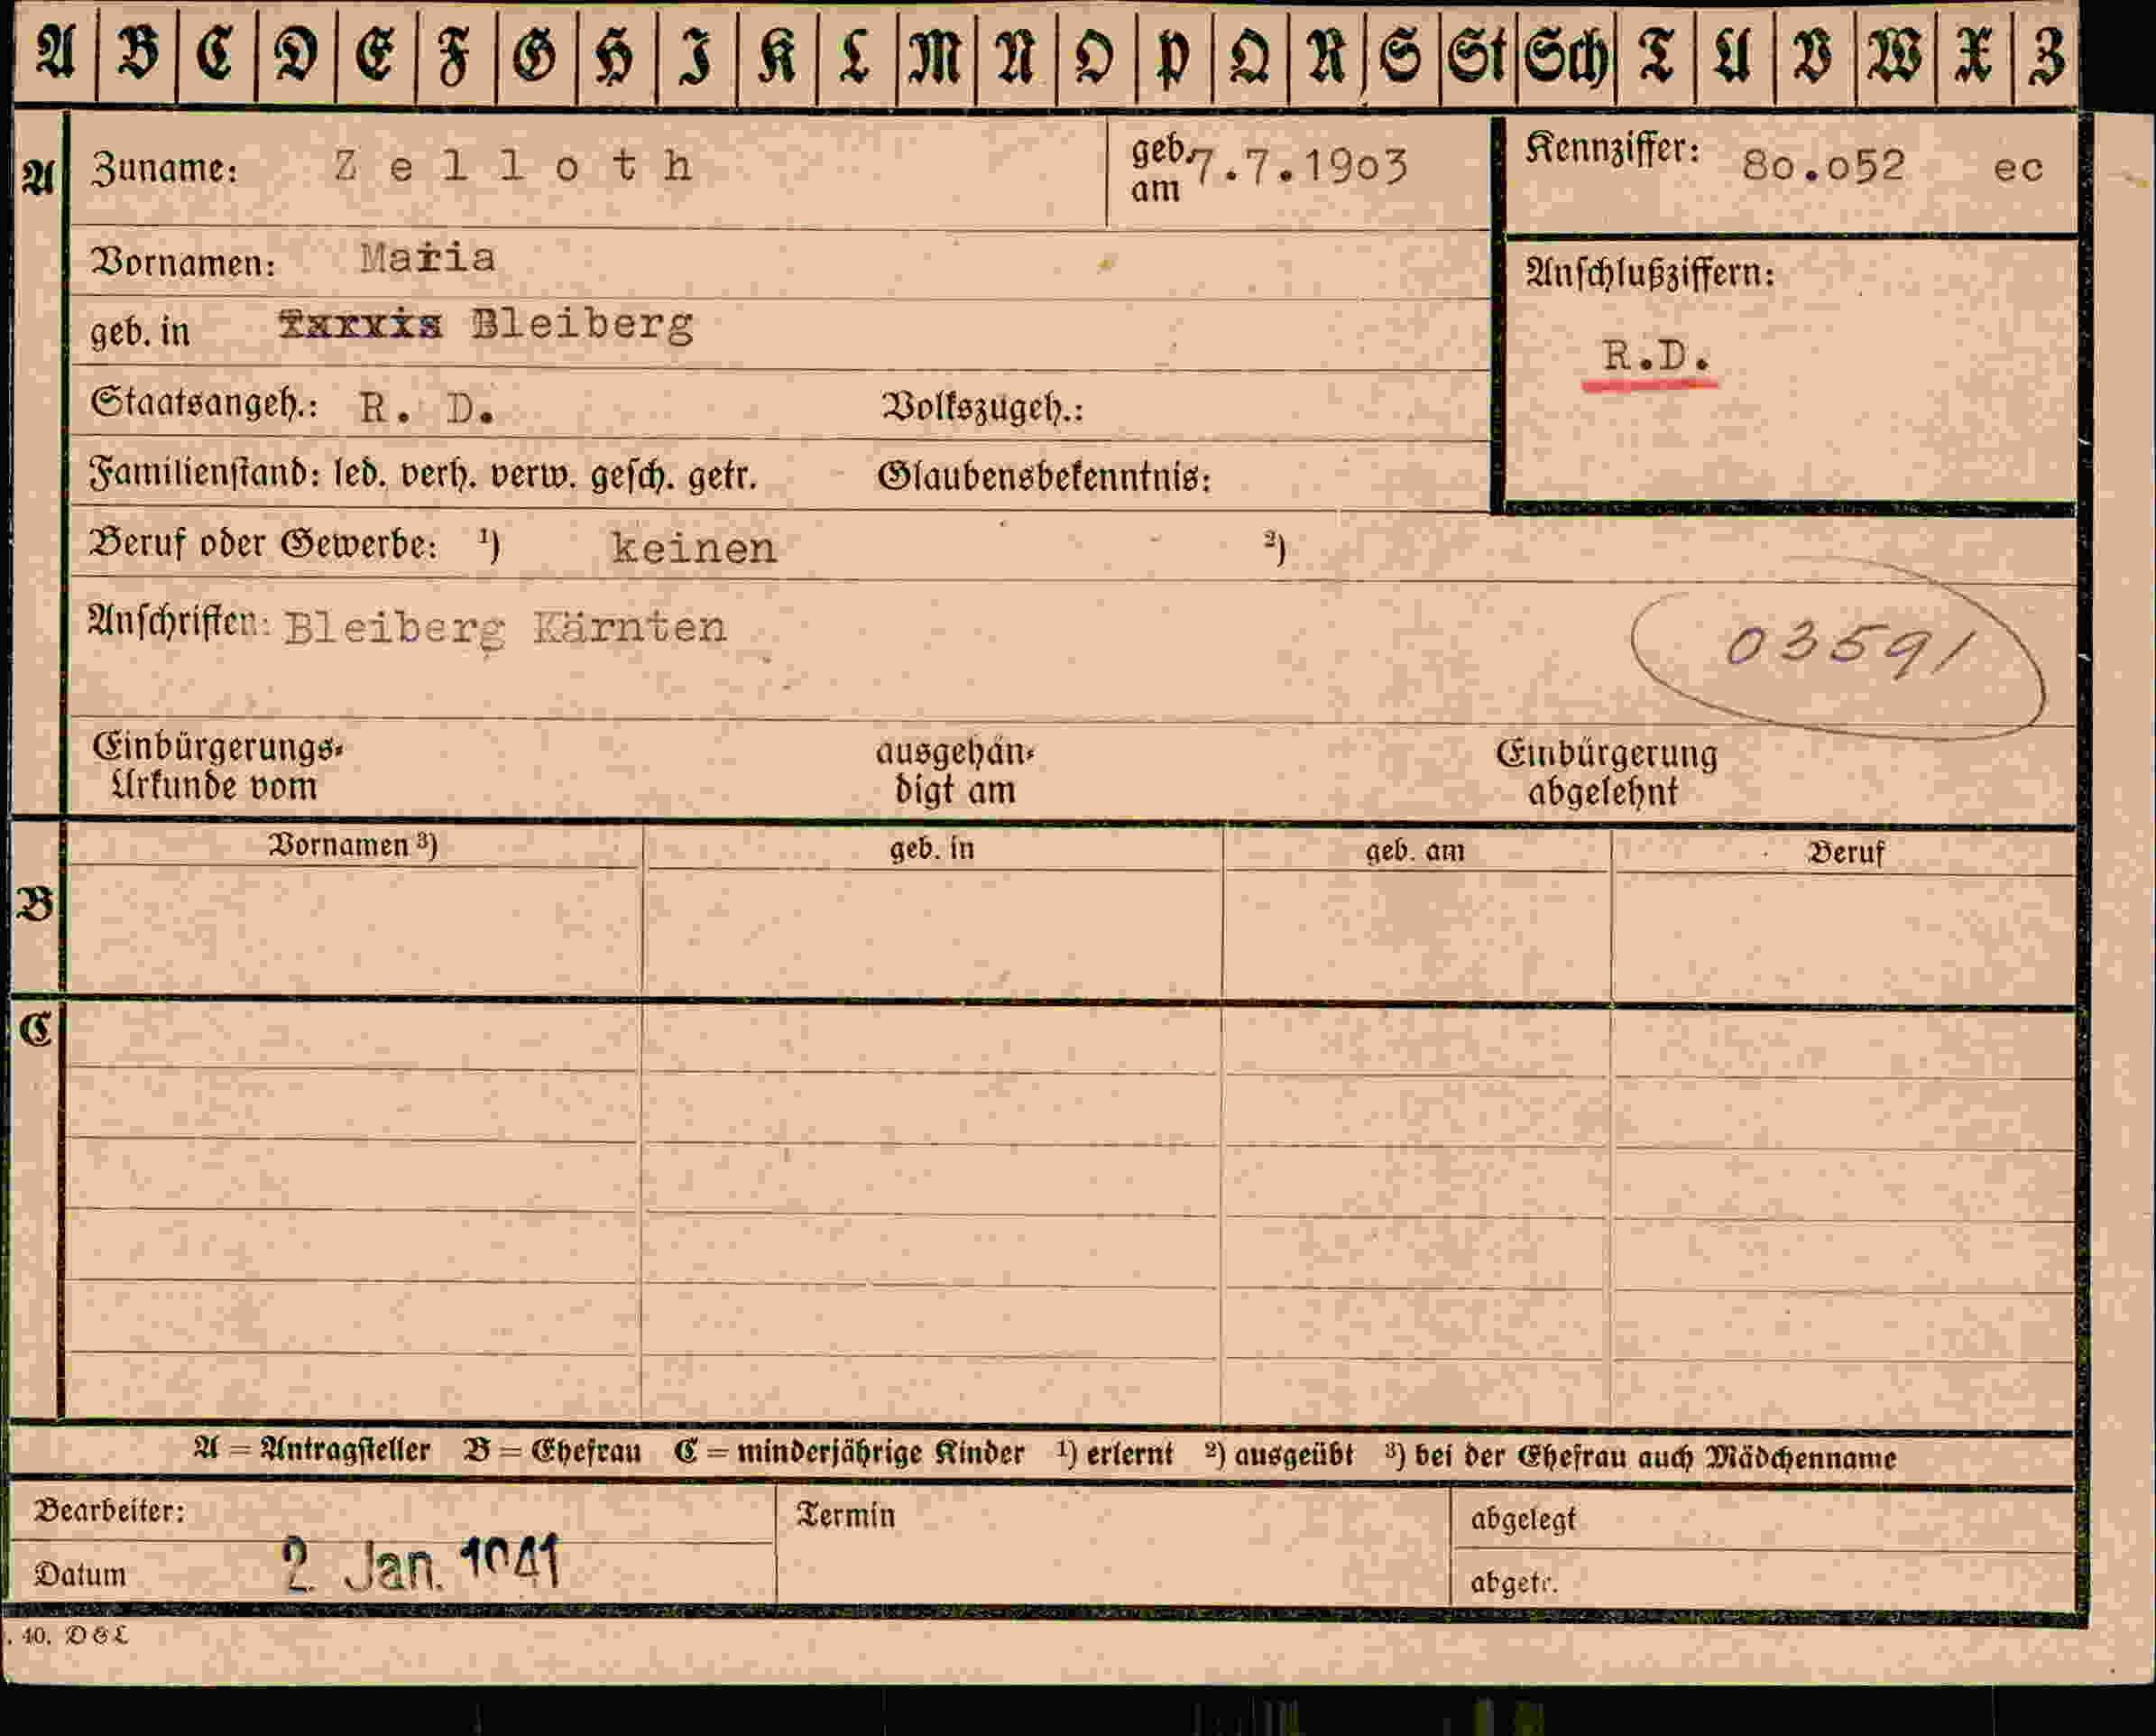 A B C D E F G H I K L M N O P Q R S St Sch T U V W X Z
A Zuname: Zelloth geb. am 7.7.1903 Kennziffer: 80.052 ec
Vornamen: Maria
Anschlußziffern:
geb. in Tarvis Bleiberg
R.D.
Staatsangeh.: R. D. Volkszugeh.:
Familienstand: led. verh. verw. gesch. getr. Glaubensbekenntnis:
Beruf oder Gewerbe: ¹) keinen ²)
Anschriften: Bleiberg Kärnten
03591
Einbürgerungs-
Urkunde vom
ausgehän-
digt am
Einbürgerung
abgelehnt
Vornamen ³) geb. in geb. am Beruf
B
C
A = Antragsteller B = Ehefrau C = minderjährige Kinder ¹) erlernt ²) ausgeübt ³) bei der Ehefrau auch Mädchenname
Bearbeiter: Termin abgelegt
Datum 2. Jan. 1941 abgetr.
. 40. D & L